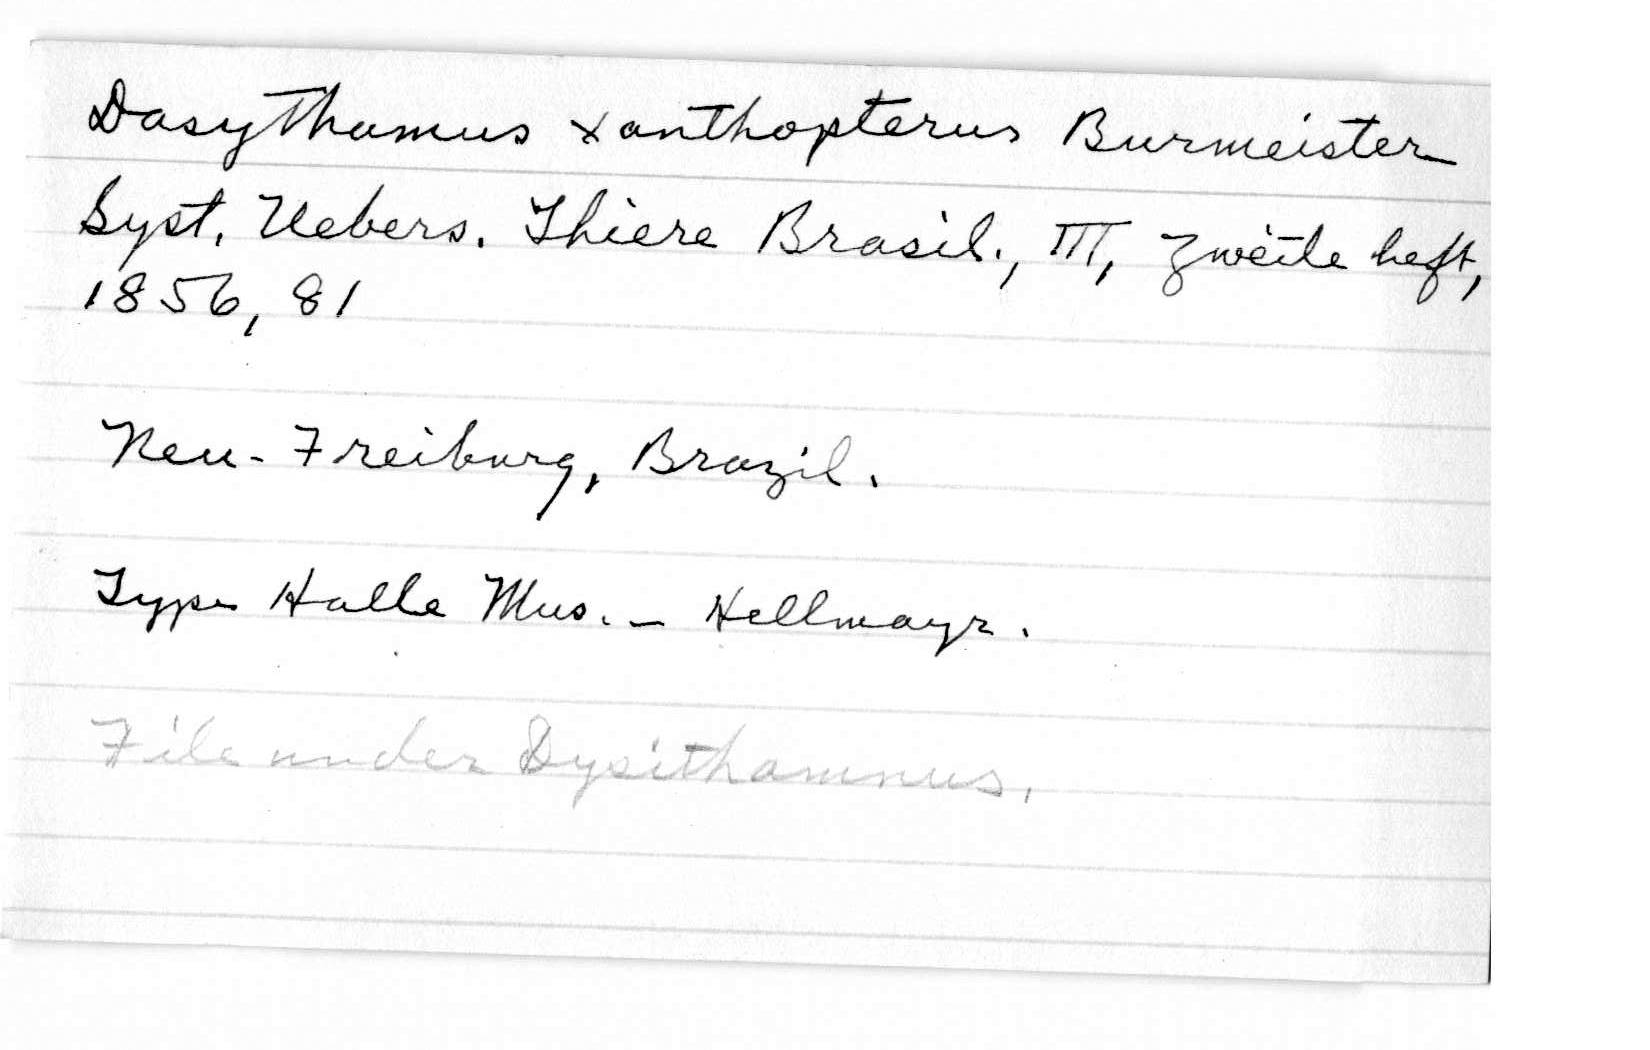 Dasythamus xanthopterus Burmeister
Syst. Uebers. Thiere Brasil., III, zweite heft,
1856, 81
Neu-Freiburg, Brazil.
Type Halle Mus. – Hellmayr.
File under Dysithamnus.